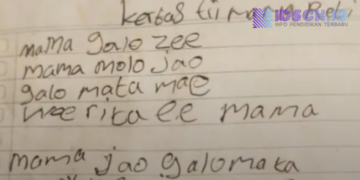 kertas Tii mama Reti
mama galo zee
mama molo jao
galo mata mae
wee rita ee mama
mama jao galo mata